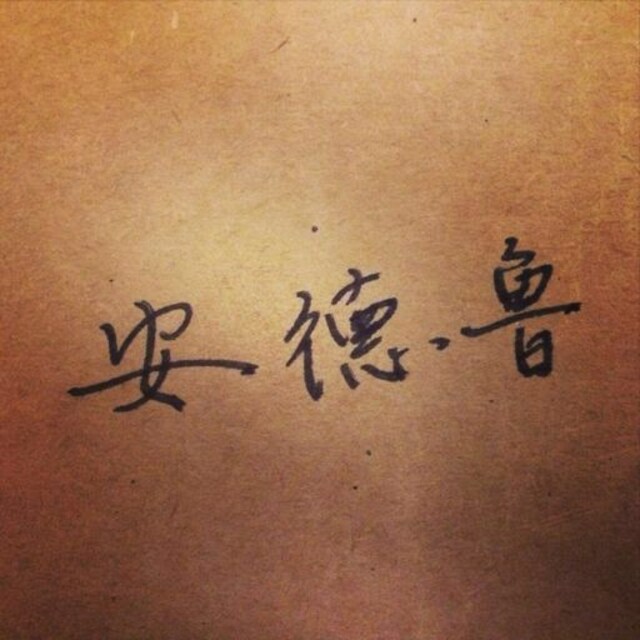 安德鲁